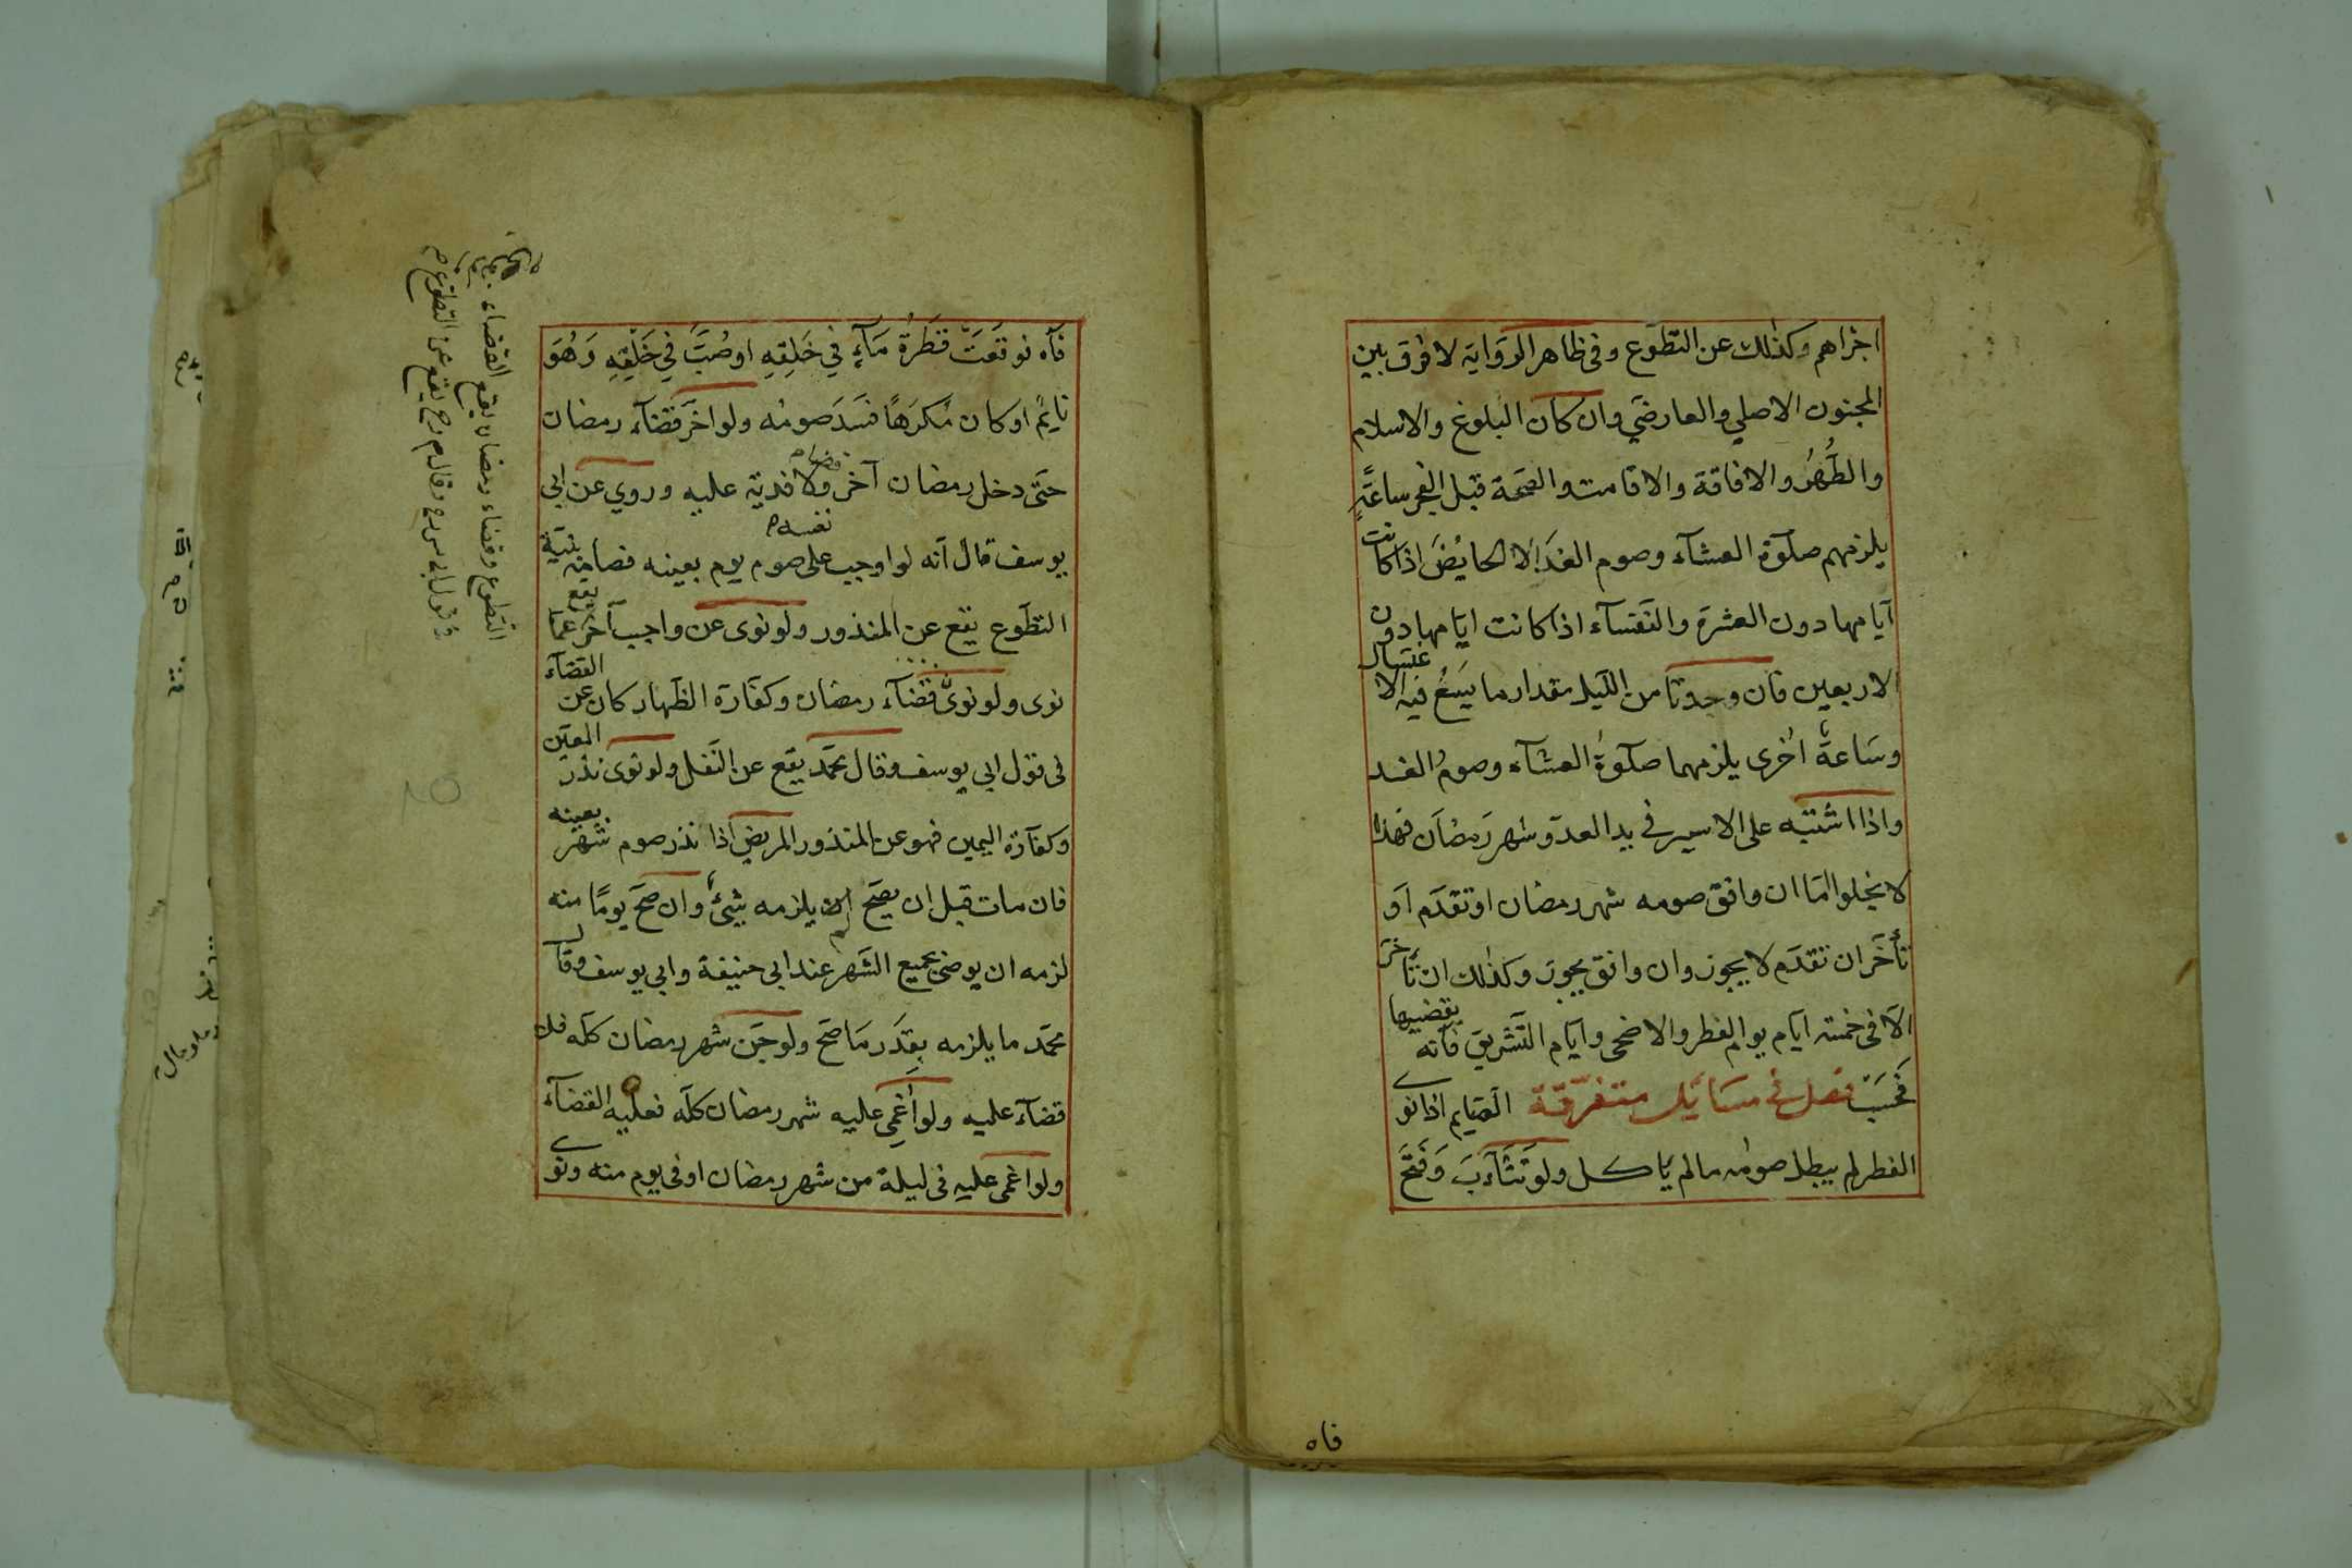 اجزاهم وكذلك عن التطوع وفى ظاهر الرواية لا فرق بين
المجنون الاصلي والعارضي وان كان البلوغ والاسلام
والطُّهُر والافاقة والاقامت والصحة قبل الفجر ساعةٍ
يلزمهم صلوة العشآء وصوم الغد الا الحايض اذا كانت
ايامها دون العشرة والنفسآء اذا كانت ايامها دون
الاربعين فان وجدتا من الليل مقدار ما يسَعُ فيه الاغتسال
وسَاعةً اخرى يلزمهما صلوةُ العشآء وصومُ الغد
واذا اشتبه على الاسير فى يد العدو شهر رمضان فهذا
لا يخلوا اما ان وافق صومه شهر رمضان او تقدم او
تأخر ان تقدم لا يجوز وان وافق يجوز وكذلك ان تأخر
الا فى خمسة ايام يوم الفطر والاضحى وايام التشريق فانه يقضيها
فحَسَب فصل فى مسايل متفرقة الصايم اذا نوى
الفطر لم يبطل صومه مالم ياكل ولو تَثَآءَبَ وَفَتَحَ
فاه
فآه فوقعَتْ قطرَةُ مَآءٍ فِي حَلقِهِ او صُبَّ فِي حَلْقِهِ وَهُوَ
نايمٌ او كان مُكرَهاً فسَد صومُه ولو اخّر قضآء رمضان
حتى دخل رمضان آخر ولا فدية عليه وروي عن ابى
يوسف قال انه لو اوجب على نفسه صوم يوم بعينه فصامه بنية
التطوع يقع عن المنذور ولو نوى عن واجب آخر يقع عما
نوى ولو نوى قضآء رمضان وكفارة الظهار كان عن القضآء
فى قول ابى يوسف وقال محمد يقع عن النفل ولو نوى نذر المعين
وكفارة اليمين فهو عن المنذور المريض اذا نذر صوم شهر بعينه
فان مات قبل ان يصح لم يلزمه شئ وان صح يومًا منه
لزمه ان يوصى بجميع الشهر عند ابى حنيفة وابى يوسف وقال
محمد ما يلزمه بقدر ما صح ولو جن شهر رمضان كله فلا
قضآء عليه ولو اُغمِى عليه شهر رمضان كله فعليه القضآء
ولو اغمى عليه فى ليلة من شهر رمضان او فى يوم منه ونوى
التطوع وقضاء رمضان يقع القضاء
فى قول ابى س رح وقال م رح يقع عن التطوع